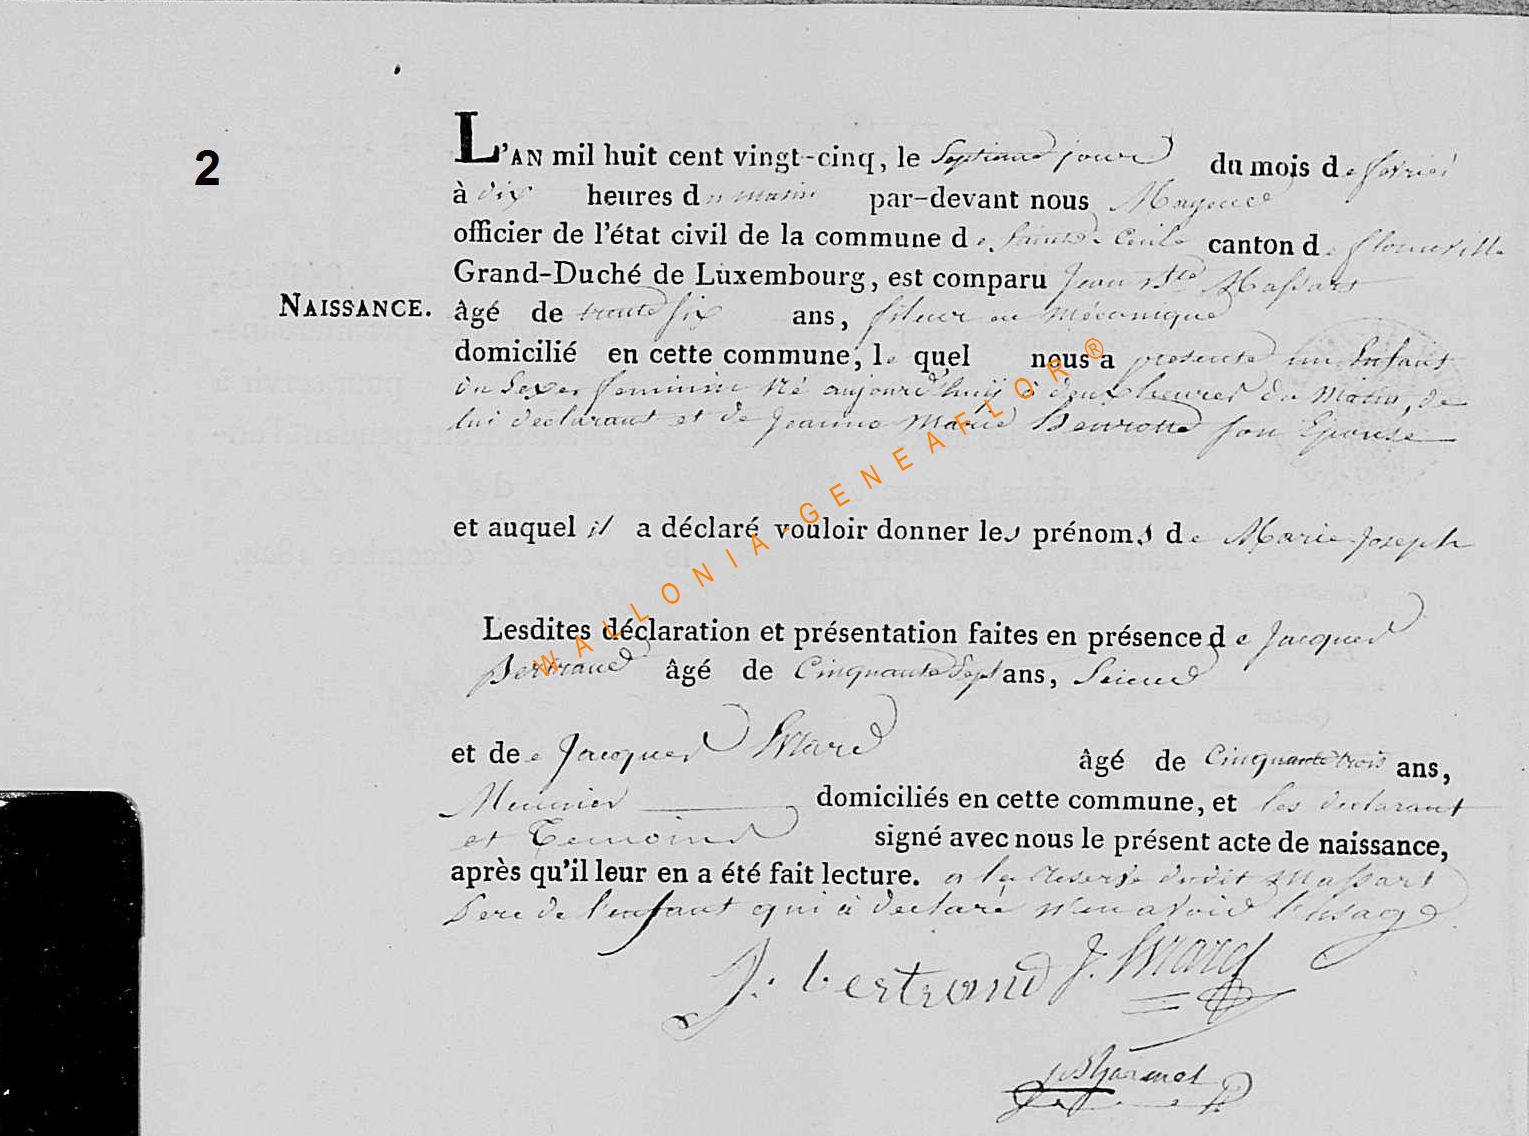 2
L'AN mil huit cent vingt-cinq, le Septieme jour du mois de fevrier
à dix heures du matin par-devant nous
officier de l'état civil de la commune de Sainte Cecile canton de florenville
Grand-Duché de Luxembourg, est comparu Jean Bte Massart
NAISSANCE.
âgé de trente six ans, fileur en Mécanique
domicilié en cette commune, lequel nous a presenté un Enfant
du Sexe feminin Né aujourd'huij à deux heures du Matin, de
lui declarant et de Jeanne Marie Henrotte son Epouse
et auquel il a déclaré vouloir donner les prénoms de Marie Joseph
Lesdites déclaration et présentation faites en présence de Jacques
Bertrand âgé de Cinquante Sept ans, Scieur
et de Jacques âgé de Cinquante trois ans,
Meunier domiciliés en cette commune, et les declarant
et Temoins signé avec nous le présent acte de naissance,
après qu'il leur en a été fait lecture. a la reserve dudit Massart
Pere de l'enfant qui a declaré n'en avoir l'usage
J. bertrand J.
WALLONIA-GENEAFLOR ®